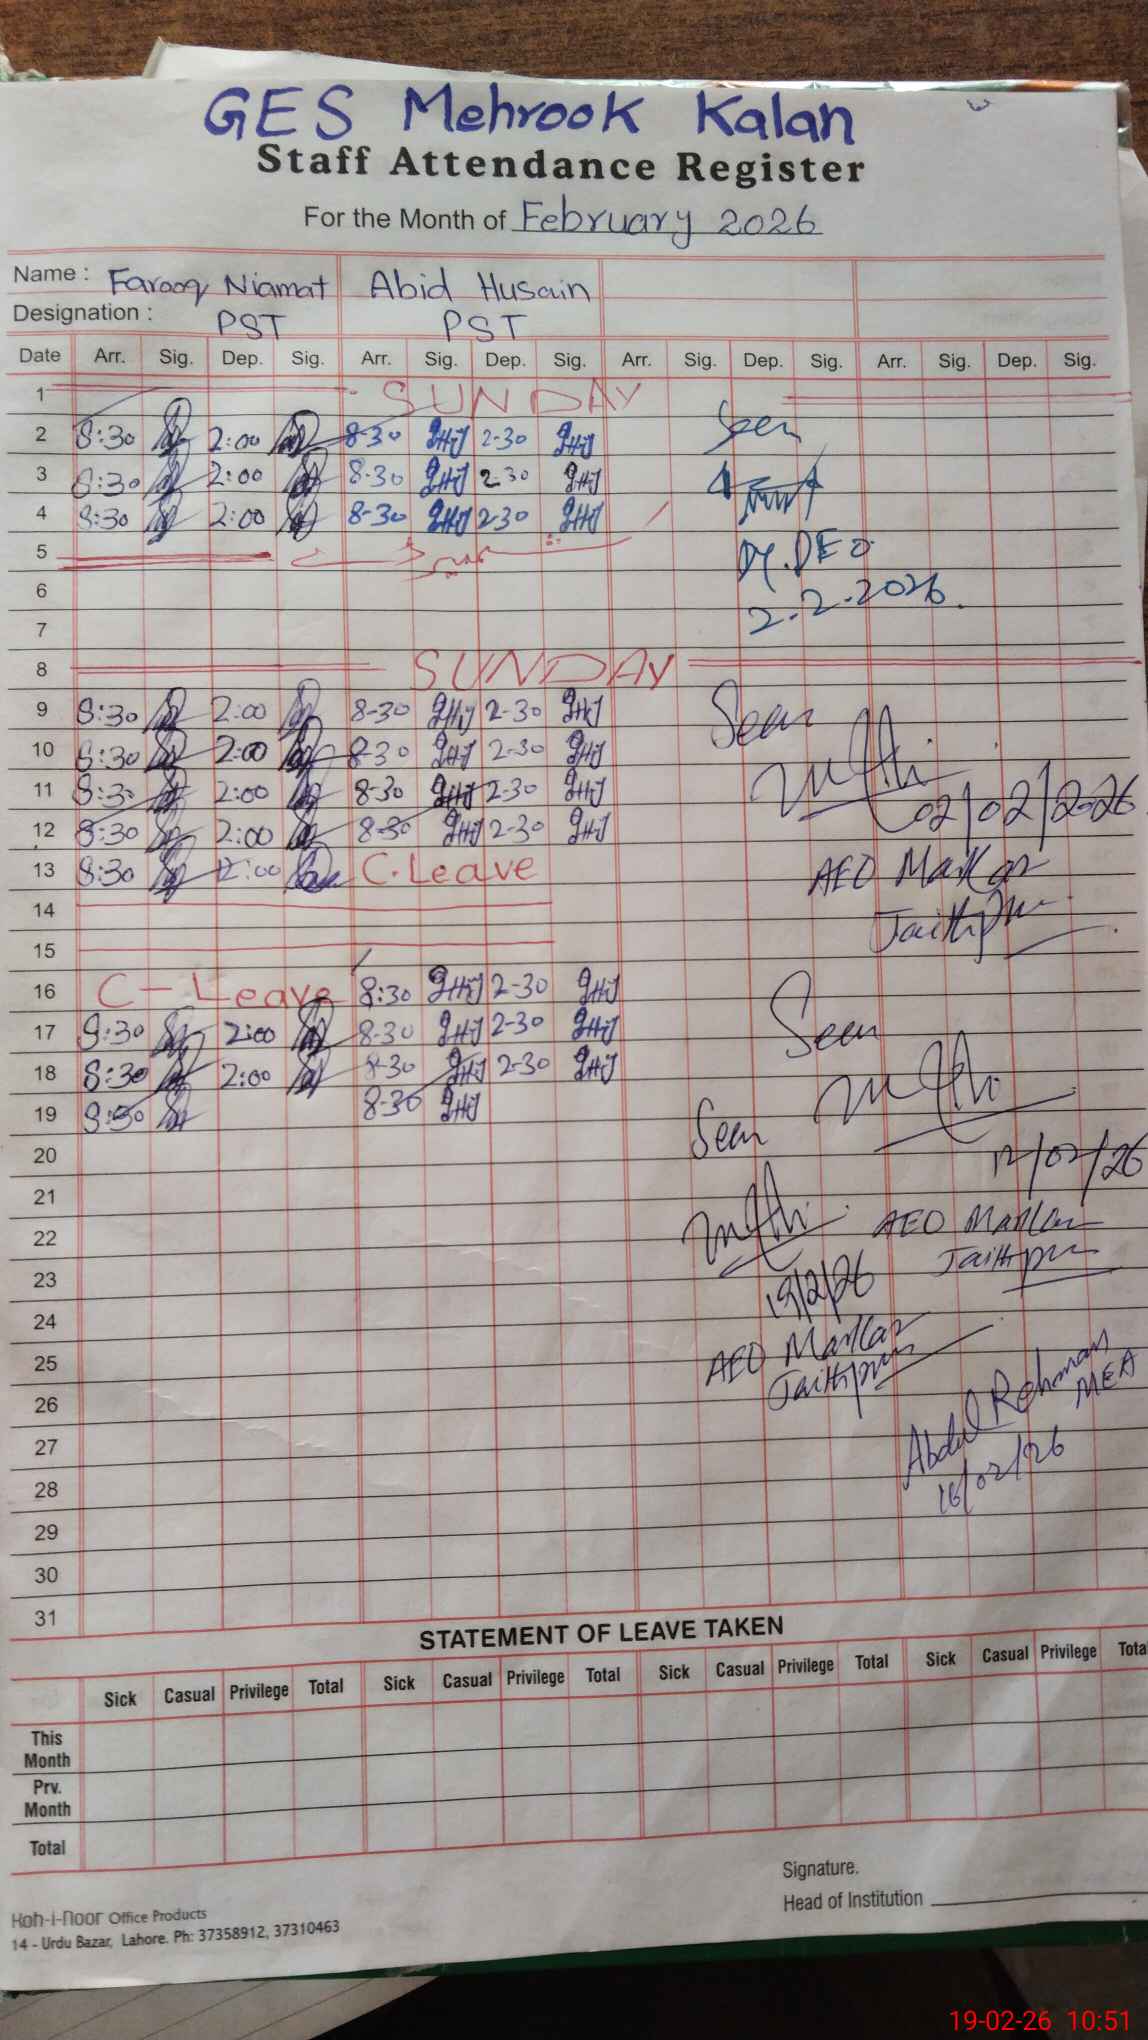 GES Mehrook Kalan
Staff Attendance Register
For the Month of February 2026
Name : Farooq Niamat Abid Husain
Designation : PST PST
Date Arr. Sig. Dep. Sig. Arr. Sig. Dep. Sig. Arr. Sig. Dep. Sig. Arr. Sig. Dep. Sig.
1 SUNDAY
2 8:30 2:00 8-30 2-30 Seen
3 8:30 2:00 8-30 2-30
4 8:30 2:00 8-30 2-30
5 Dy. DEO
6 2-2-2026
7
8 SUNDAY
9 8:30 2:00 8-30 2-30 Seen
10 8:30 2:00 8-30 2-30
11 8:30 2:00 8-30 2-30 02/02/2026
12 8:30 2:00 8-30 2-30
13 8:30 2:00 C.Leave AEO Markaz
14 Jaithpur
15
16 C-Leave 8:30 2-30 Seen
17 8:30 2:00 8-30 2-30
18 8:30 2:00 8-30 2-30
19 8:30 8-30 Seen
20 12/02/26
21
22 AEO Markaz
23 Jaithpur
19/2/26
24
25 AEO Markaz
Jaithpur
26 Abdul Rehman
MEA
27
28 16/02/26
29
30
31
STATEMENT OF LEAVE TAKEN
Sick Casual Privilege Total Sick Casual Privilege Total Sick Casual Privilege Total Sick Casual Privilege Total
This
Month
Prv.
Month
Total
Signature.
Head of Institution
Koh-i-noor Office Products
14 - Urdu Bazar, Lahore. Ph: 37358912, 37310463
19-02-26 10:51